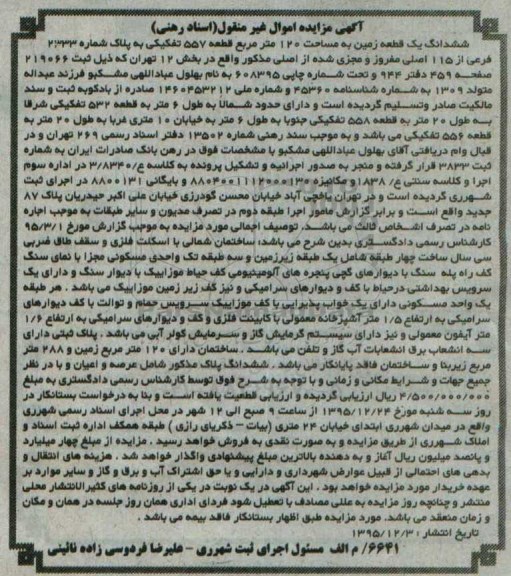 آگهی مزایده اموال غیر منقول(اسناد رهنی)
ششدانگ یک قطعه زمین به مساحت ۱۲۰ متر مربع قطعه ۵۵۷ تفکیکی به پلاک شماره ۲۳۳۳
فرعی از ۱۱۵ اصلی مفروز و مجزی شده از اصلی مذکور واقع در بخش ۱۲ تهران که ذیل ثبت ۲۱۹۰۶۶
صفحه ۴۵۹ دفتر ۹۴۴ و تحت شماره چاپی ۶۰۸۳۹۵ به نام بهلول عباداللهی مشکبو فرزند عبداله
متولد ۱۳۰۹ به شماره شناسنامه ۴۵۳۶۰ و شماره ملی ۱۴۶۰۴۵۳۲۱۲ صادره از بادکوبه ثبت و سند
مالکیت صادر وتسلیم گردیده است و دارای حدود شمالاً به طول ۶ متر به قطعه ۵۳۲ تفکیکی شرقا
به طول ۲۰ متر به قطعه ۵۵۸ تفکیکی جنوبا به طول ۶ متر به خیابان ۱۰ متری غربا به طول ۲۰ متر به
قطعه ۵۵۶ تفکیکی می باشد و به موجب سند رهنی شماره ۱۳۵۰۲ دفتر اسناد رسمی ۲۶۹ تهران و در
قبال وام دریافتی آقای بهلول عباداللهی مشکبو با مشخصات فوق در رهن بانک صادرات ایران به شماره
ثبت ۳۸۳۳ قرار گرفته و منجر به صدور اجرائیه و تشکیل پرونده به کلاسه ع/۳/۸۳۴۰ در اداره سوم
اجرا و کلاسه سنتی ع/۱۸۳۸ و مکانیزه و بایگانی ۸۸۰۰۱۳۱ در اجرای ثبت
شهرری گردیده است و در تهران یاخچی آباد خیابان محسن گودرزی خیابان علی اکبر حیدریان پلاک ۸۷
جدید واقع است و برابر گزارش مامور اجرا طبقه دوم در تصرف مدیون و سایر طبقات به موجب اجاره
نامه در تصرف اشخاص ثالث می باشد. توصیف اجمالی مورد مزایده به موجب گزارش مورخ ۹۵/۳/۱
کارشناس رسمی دادگستری بدین شرح می باشد: ساختمان شمالی با اسکلت فلزی و سقف طاق ضربی
سی سال ساخت چهار طبقه شامل یک طبقه زیرزمین و سه طبقه تک واحدی مسکونی مجزا با نمای سنگ
کف راه پله سنگ با دیوارهای گچی پنجره های آلومینیومی کف حیاط موزاییک با دیوار سنگ و دارای یک
سرویس بهداشتی درحیاط با کف و دیوارهای سرامیکی و نیز کف زیر زمین موزاییک می باشد . هر طبقه
یک واحد مسکونی دارای یک خواب پذیرایی با کف موزاییک سرویس حمام و توالت با کف دیوارهای
سرامیکی به ارتفاع ۱/۵ متر آشپزخانه معمولی با کابینت فلزی و کف و دیوارهای سرامیکی به ارتفاع ۱/۶
متر آیفون معمولی و نیز دارای سیستم گرمایش گاز و سرمایش کولر آبی می باشد . پلاک ثبتی دارای
سه انشعاب برق انشعابات آب گاز و تلفن می باشد . ساختمان دارای ۱۲۰ متر مربع زمین و ۲۸۸ متر
مربع زیربنا و ساختمان فاقد پایانکار می باشد . ششدانگ پلاک مذکور شامل عرصه و اعیان و با در نظر
جمیع جهات و شرایط مکانی و زمانی و با توجه به شرح فوق توسط کارشناس رسمی دادگستری به مبلغ
۴/۵۰۰/۰۰۰/۰۰۰ ریال ارزیابی گردیده و ارزیابی قطعیت یافته است و بنا به درخواست بستانکار در
روز سه شنبه مورخ ۱۳۹۵/۱۲/۲۴ از ساعت ۹ صبح الی ۱۲ شهر در محل اجرای اسناد رسمی شهرری
واقع در میدان شهرری ابتدای خیابان ۲۴ متری (بیات – ذکریای رازی ) طبقه همکف اداره ثبت اسناد و
املاک شهرری از طریق مزایده و به صورت نقدی به فروش خواهد رسید . مزایده از مبلغ چهار میلیارد
و پانصد میلیون ریال آغاز و به دهنده بالاترین مبلغ پیشنهادی واگذار خواهد شد . هزینه های انتقال و
بدهی های احتمالی از قبیل عوارض شهرداری و دارایی و یا حق اشتراک آب و برق و گاز و سایر موارد بر
عهده خریدار مورد مزایده خواهد بود . این آگهی در یک نوبت در یکی از روزنامه های کثیرالانتشار محلی
منتشر و چنانچه روز مزایده به عللی مصادف با تعطیل شود فردای اداری همان روز جلسه در همان و مکان
و زمان منعقد می باشد. مورد مزایده طبق اظهار بستانکار فاقد بیمه می باشد .
تاریخ انتشار : ۱۳۹۵/۱۲/۳
۶۶۴۱/ م الف مسئول اجرای ثبت شهرری – علیرضا فردوسی زاده نائینی